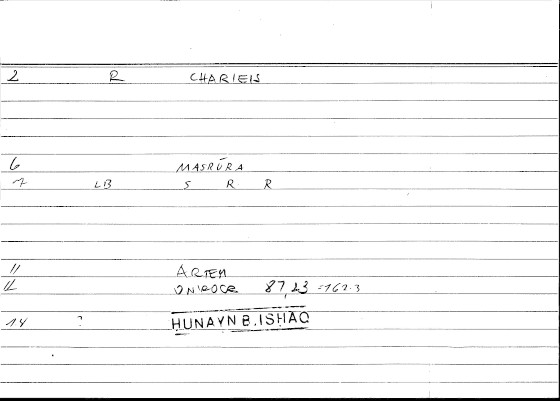 2 R CHARIEIS
6 MASRŪRA
7 LB S R R
11 ARTEM
12 ONIROCR 87,23 = 162.3
14 ? HUNAYN B. ISHAQ